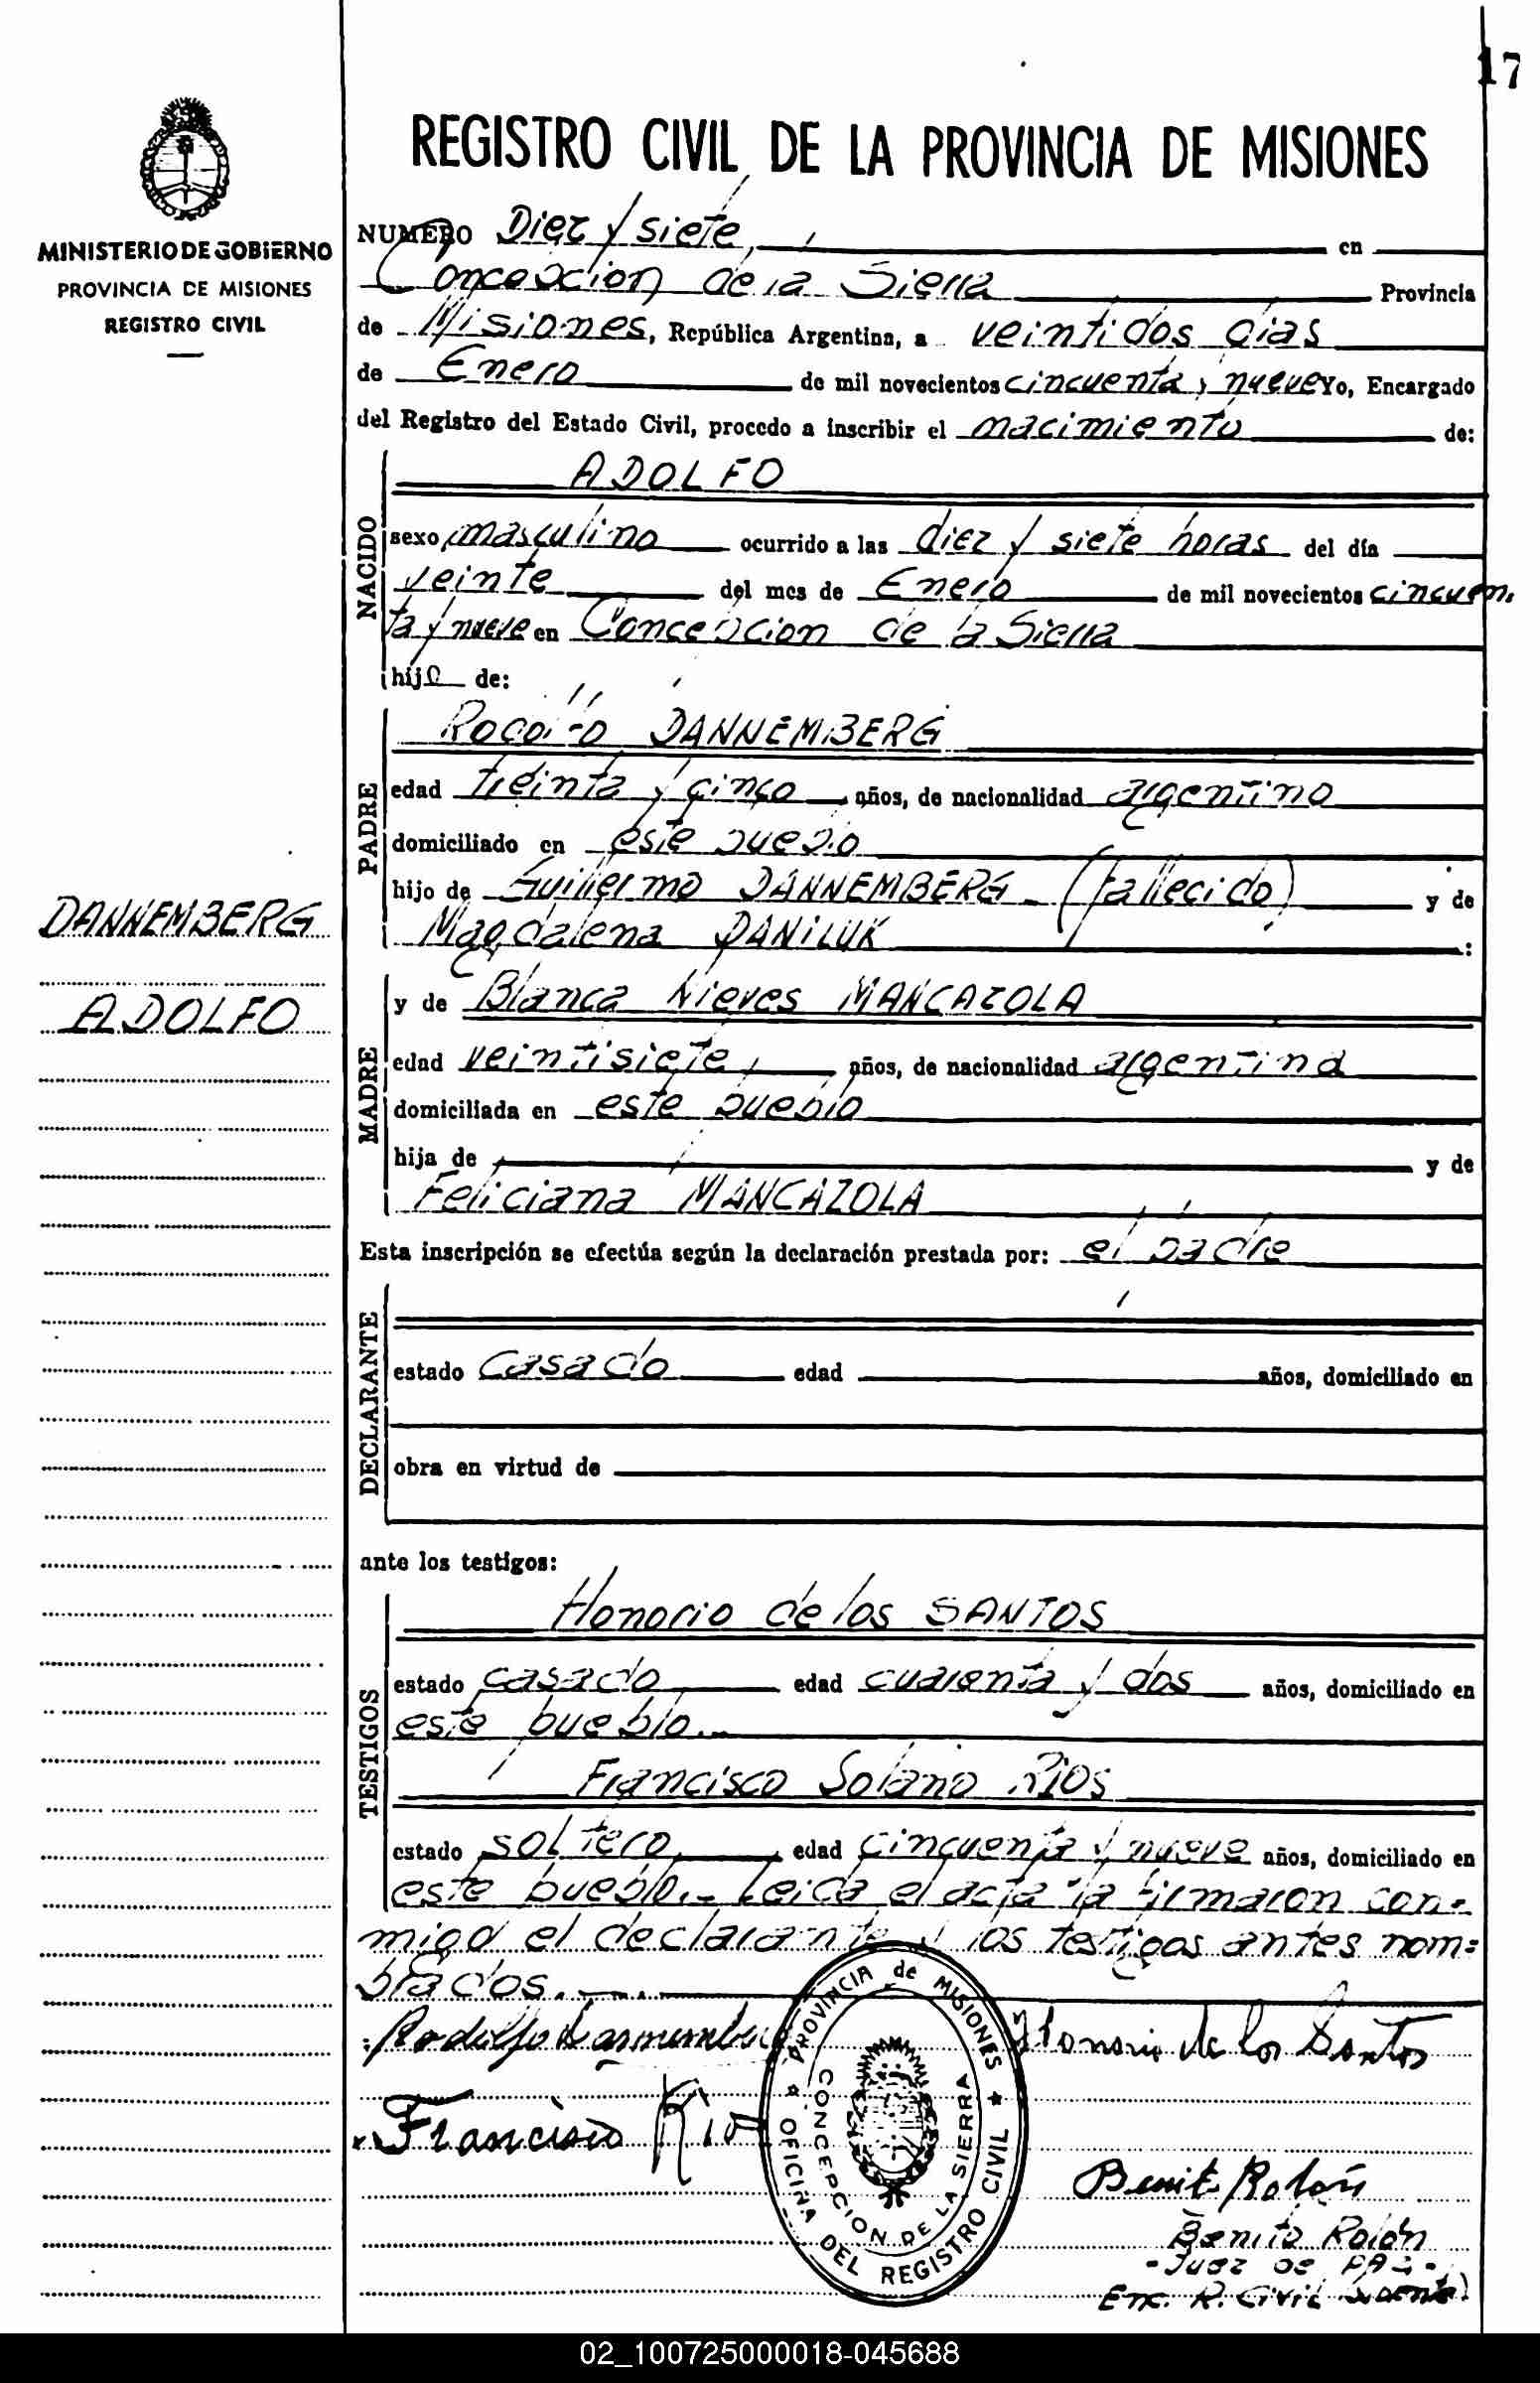 17
REGISTRO CIVIL DE LA PROVINCIA DE MISIONES
MINISTERIO DE GOBIERNO
PROVINCIA DE MISIONES
REGISTRO CIVIL
NUMERO Diez y siete, en
Concepcion de la Sierra Provincia
de Misiones, República Argentina, a veintidos dias
de Enero de mil novecientos cincuenta y nueve Yo, Encargado
del Registro del Estado Civil, procedo a inscribir el nacimiento de:
NACIDO
ADOLFO
sexo masculino ocurrido a las diez y siete horas del día
veinte del mes de Enero de mil novecientos cincuen
ta y nueve en Concepcion de la Sierra
hijo de:
PADRE
Rodolfo DANNEMBERG
edad treinta y cinco años, de nacionalidad argentino
domiciliado en este pueblo
hijo de Guillermo DANNEMBERG (fallecido) y de
Magdalena DANILUK :
DANNEMBERG
ADOLFO
MADRE
y de Blanca Nieves MANCAZOLA
edad veintisiete, años, de nacionalidad argentina
domiciliada en este pueblo
hija de y de
Feliciana MANCAZOLA
Esta inscripción se efectúa según la declaración prestada por: el padre
DECLARANTE
estado casado edad años, domiciliado en
obra en virtud de
ante los testigos:
TESTIGOS
Honorio de los SANTOS
estado casado edad cuarenta y dos años, domiciliado en
este pueblo.-
Francisco Solano RIOS
estado soltero edad cincuenta y nueve años, domiciliado en
este pueblo.- Leida el acta la firmaron con-
migo el declarante y los testigos antes nom=
brados.-
Rodolfo Dannemberg Honorio de los Santos
Francisco Rios
PROVINCIA de MISIONES
OFICINA DEL REGISTRO CIVIL
CONCEPCION DE LA SIERRA
Benito Rolón
Benito Rolón
-Juez de PAZ-
Enc. R. Civil
02_100725000018-045688